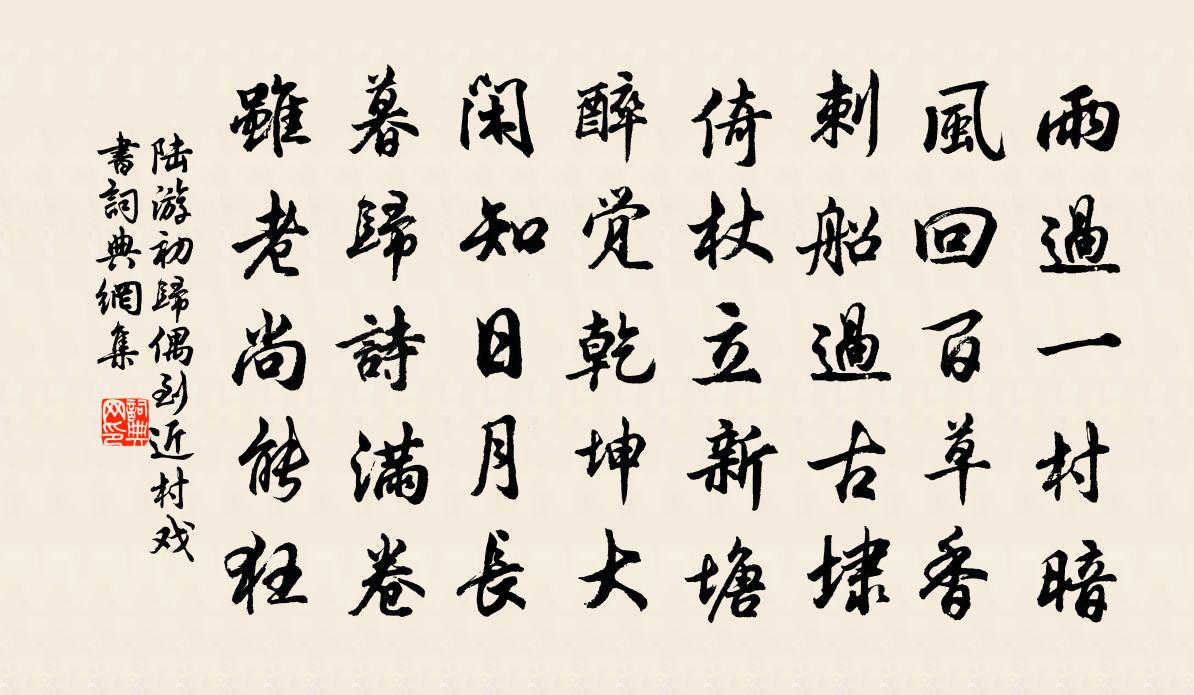 雨過一村暗
風回百草香
刺船過古埭
倚杖立新塘
醉觉乾坤大
闲知日月長
暮歸詩滿卷
雖老尚能狂
陆游初歸偶到近村戏
書詞典網集
詞典
网印